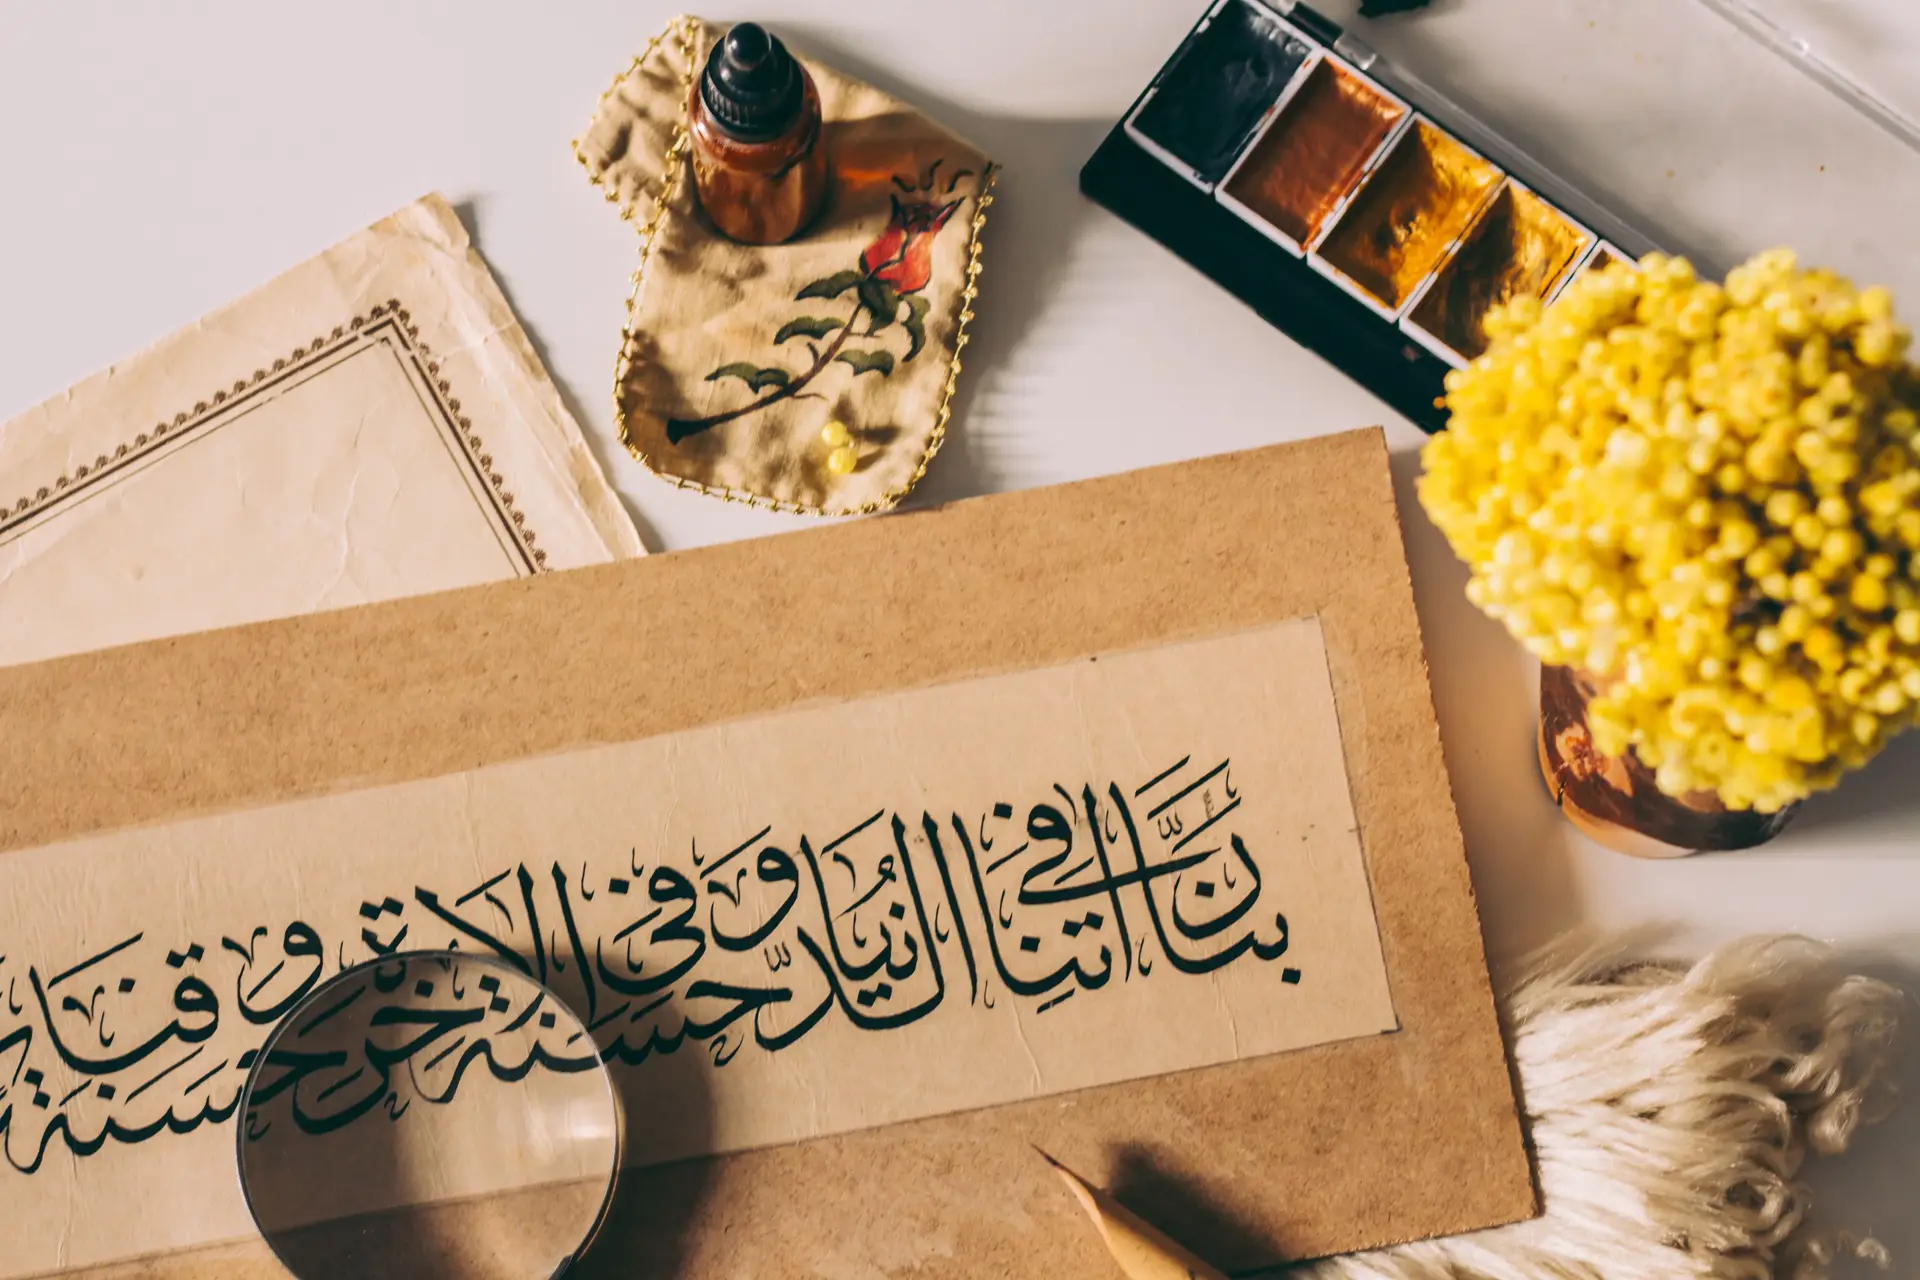 رَبَّنَا اٰتِنَا فِي الدُّنْيَا حَسَنَةً وَفِي الْاٰخِرَةِ حَسَنَةً وَقِنَا